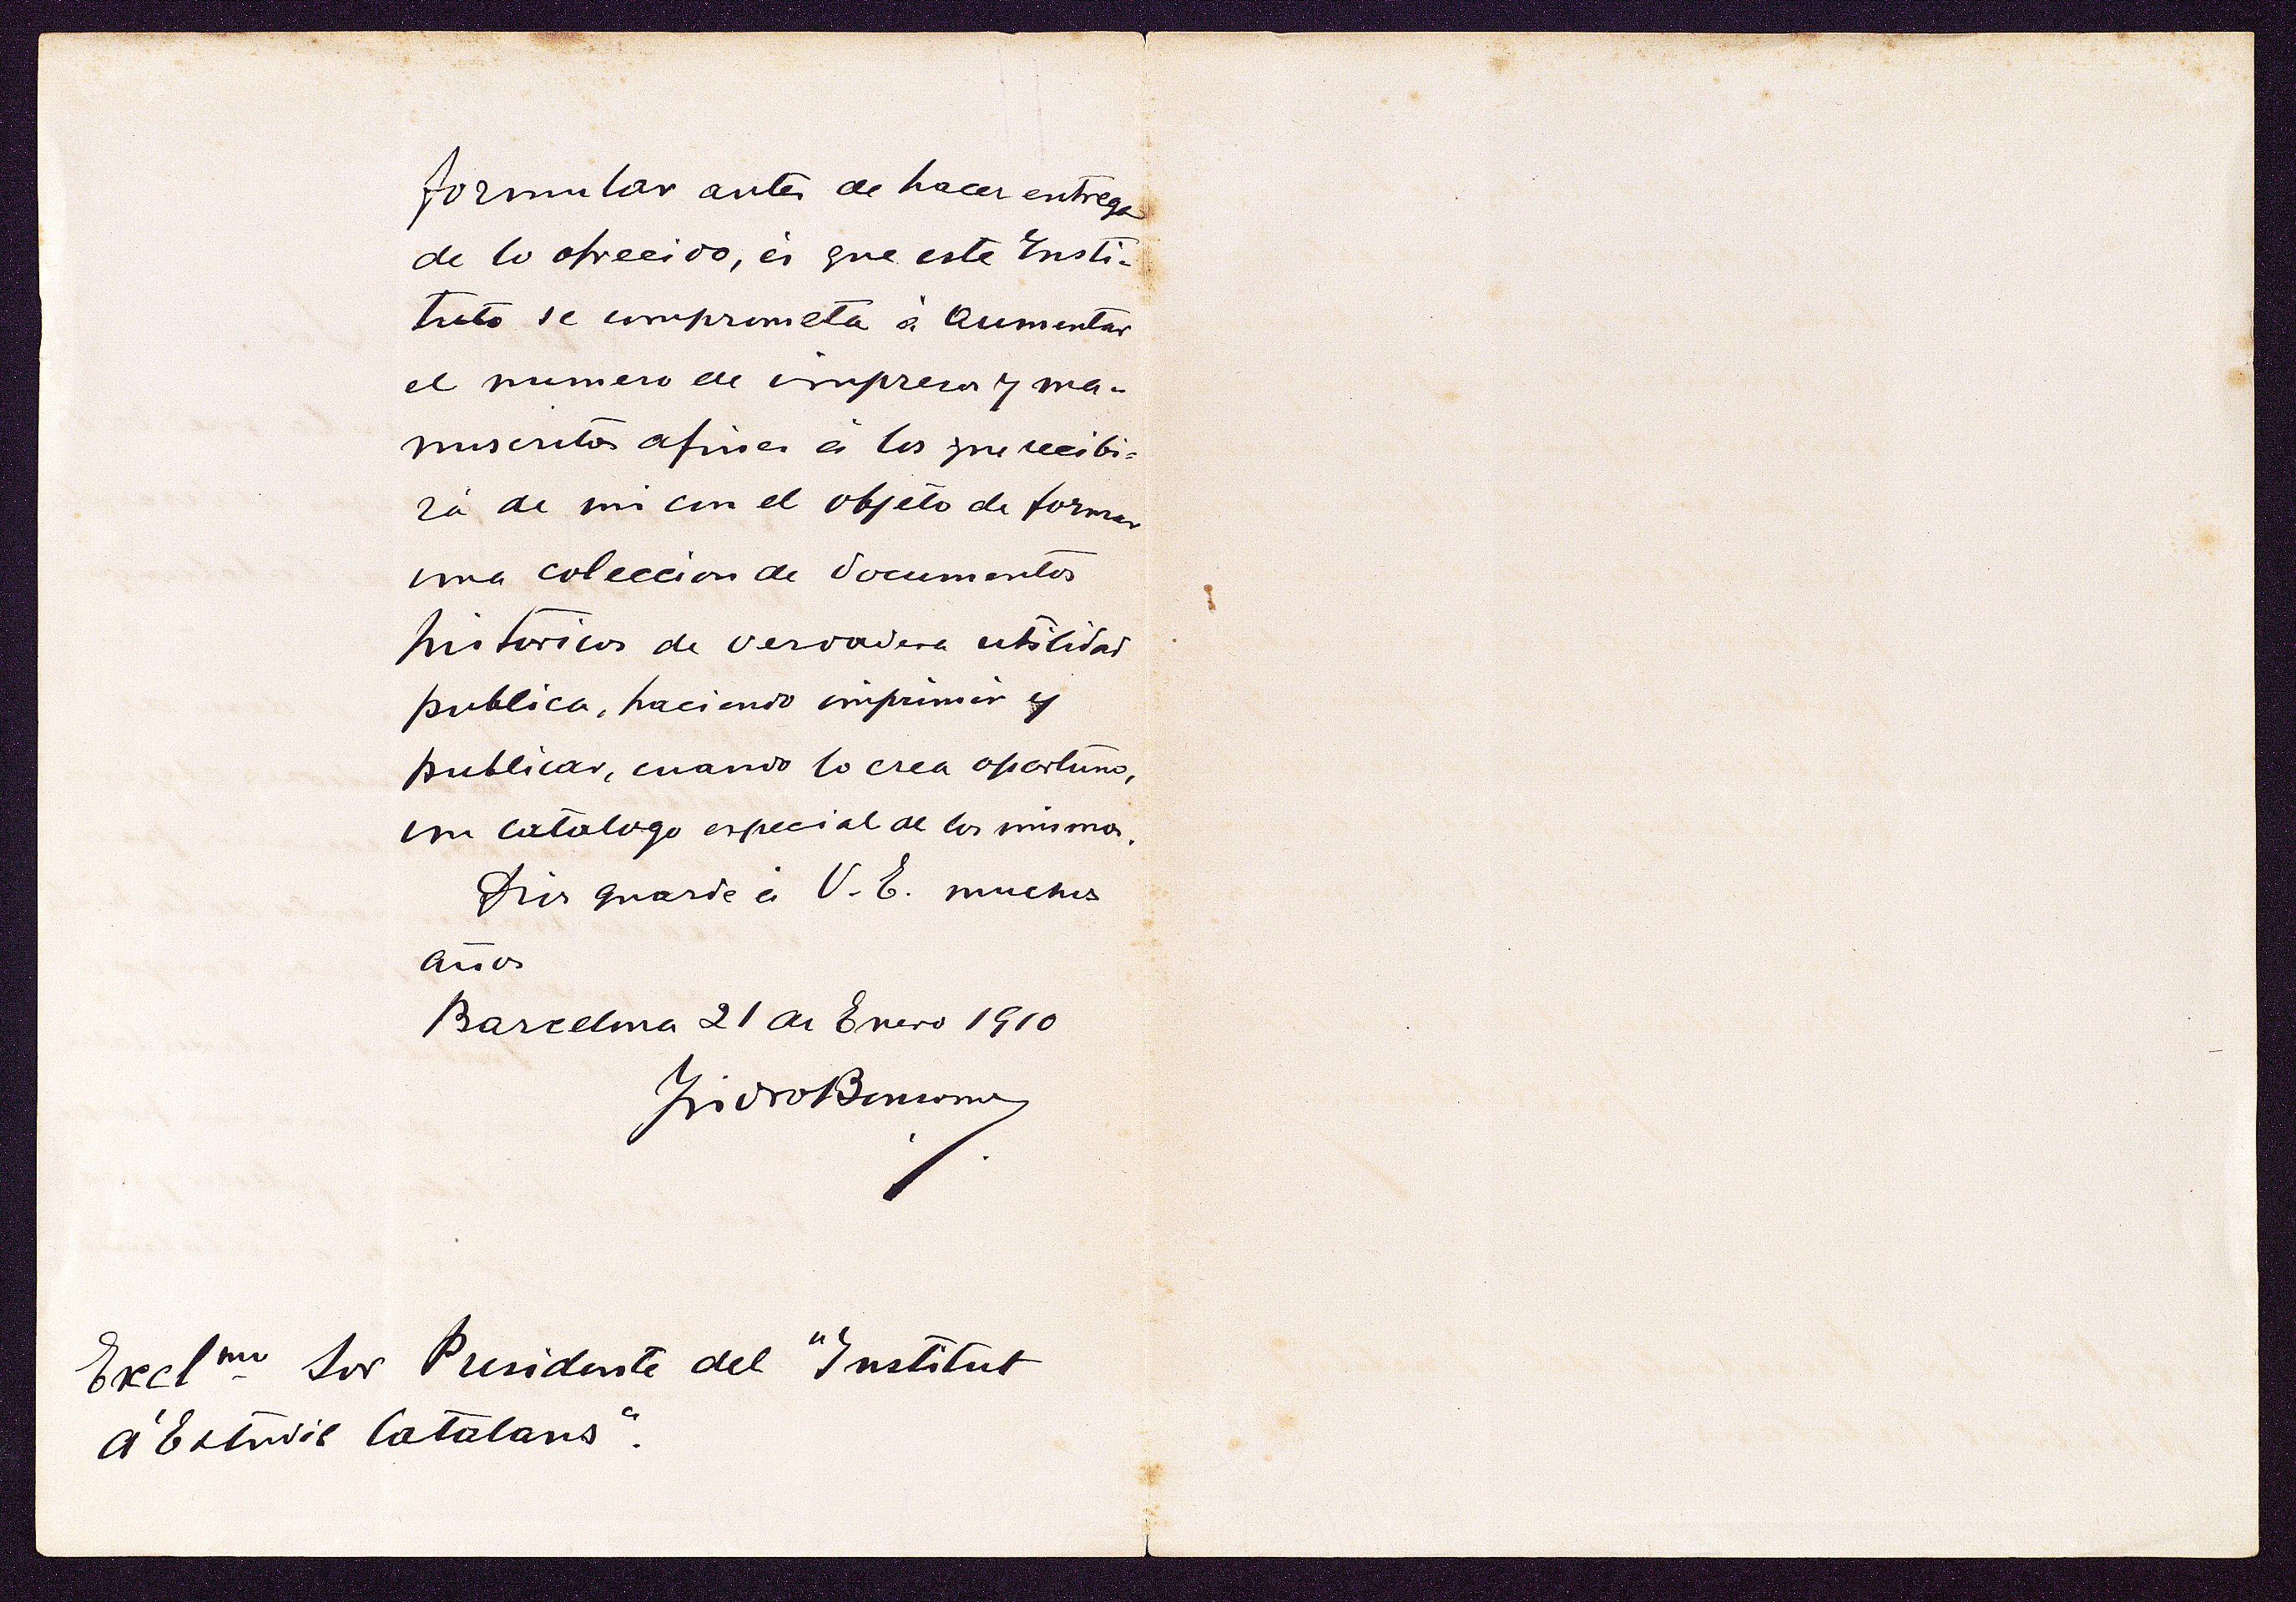 formular antes de hacer entrega
de lo ofrecido, és que este Insti-
tuto se comprometa á aumentar
el numero de impresos y ma-
nuscritos afines á los que recibi-
rá de mi con el objeto de formar
una coleccion de documentos
historicos de verdadera utilidad
publica, haciendo imprimir y
publicar, cuando lo crea oportuno,
un catalogo especial de los mismos.
Dios guarde á V. E. muchos
años
Barcelona 21 de Enero 1910
Isidro Bonsoms
Excl.mo Sor Presidente del "Institut
d'Estudis Catalans".